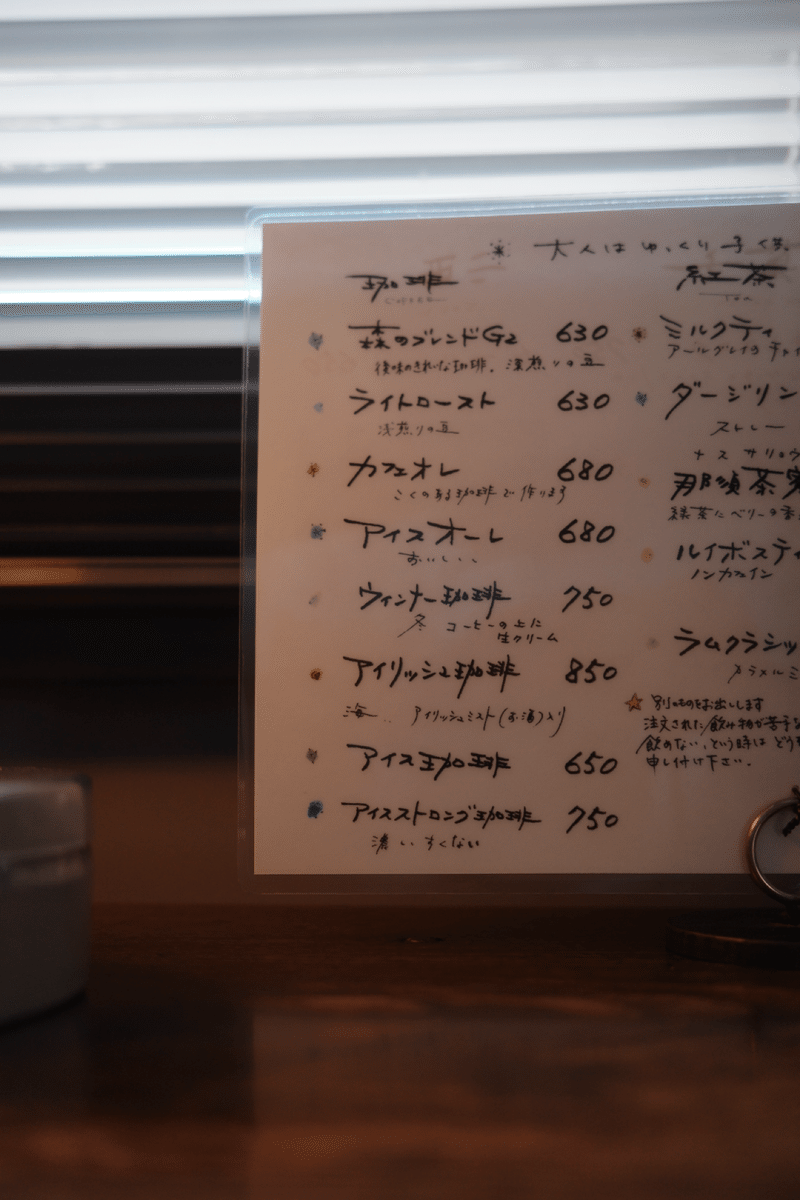 大人は ゆっくり 子供
珈琲
coffee
森のブレンドG2 630
後味のきれいな珈琲. 深煎りの豆
ライトロースト 630
浅煎りの豆
カフェオレ 680
こくのある珈琲で作ります
アイスオーレ 680
おいしい、
ウィンナー珈琲 750
冬 コーヒーの上に
生クリーム
アイリッシュ珈琲 850
海.. アイリッシュミスト(お酒)入り
アイス珈琲 650
アイスストロング珈琲 750
濃い すくない
紅茶
Tea
ミルクティ
アールグレイ
ダージリン
ストレー
ナス サリョウ
那須茶寮
緑茶にベリーの香
ルイボスティ
ノンカフェイン
ラムクラシッ
カラメルミ
別のものをお出しします
注文された飲み物が苦手な
飲めない、という時は どうぞ
申し付け下さい.